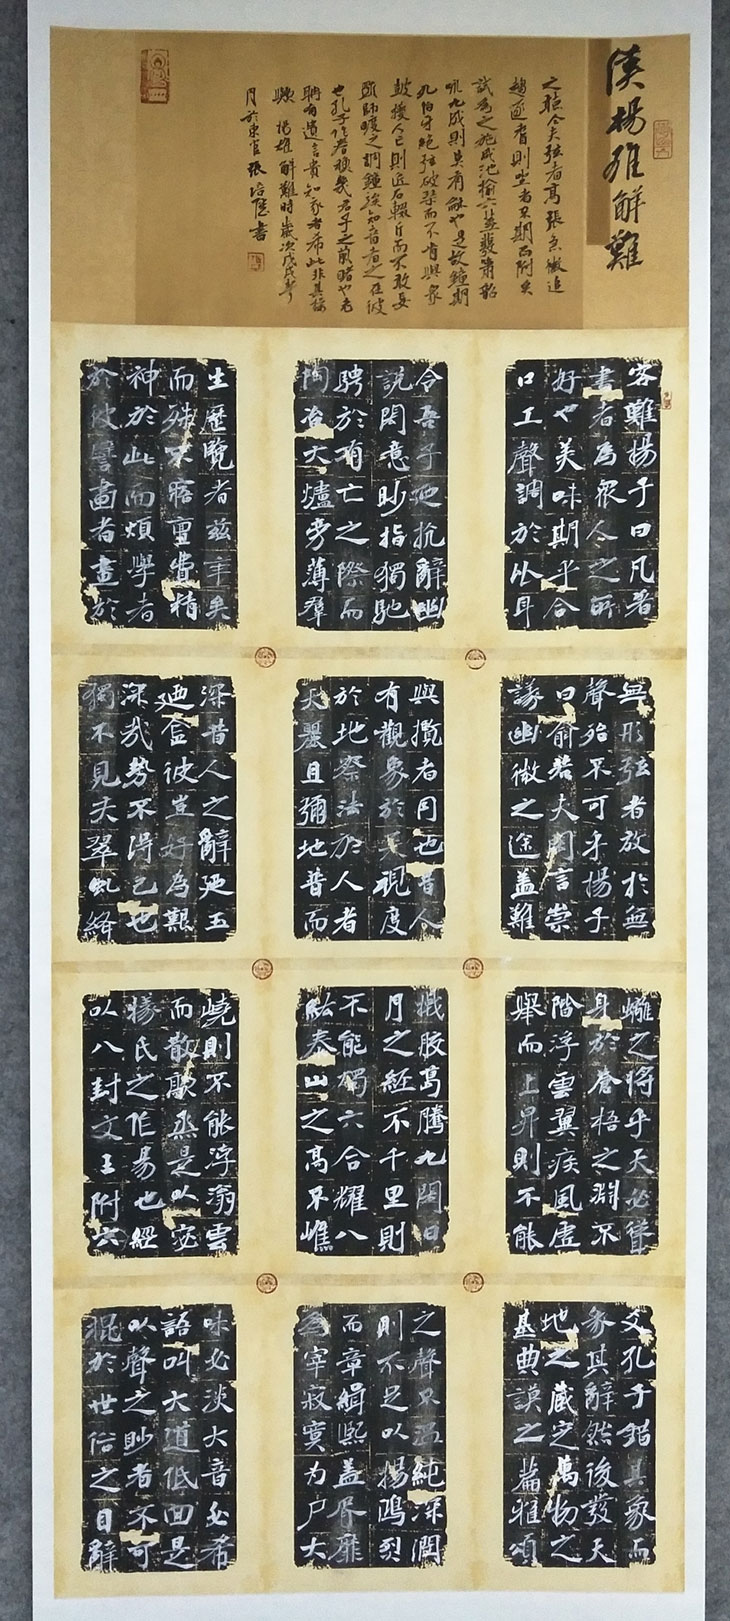 漢楊雄解難
客難揚子曰凡著
書者為眾人之所
好也美味期乎合
口工聲調於比耳
今吾子廼抗辭幽
說閎意眇指獨馳
騁於有亡之際而
陶冶大爐旁薄羣
生歷覽者茲年矣
而殊不寤亶費精
神於此而煩學者
於彼譬畫者畫於
無形弦者放於無
聲殆不可乎揚子
曰俞若夫閎言崇
議幽微之途蓋難
與攬者同也昔人
有觀象於天視度
於地察法於人者
天麗且彌地普而
深昔人之辭廼玉
廼金彼豈好為艱
深哉勢不得已也
獨不見夫翠虬絳
螭之將乎天必聳
身於蒼梧之淵不
階浮雲翼疾風虛
舉而上昇則不能
撠膠葛騰九閎日
月之經不千里則
不能燭六合耀八
紘泰山之高不嶕
嶢則不能浮滃雲
而散歊烝是以宓
犧氏之作易也經
以八卦文王附六
爻孔子錯其象而
彖其辭然後發天
地之藏定萬物之
基典謨之篇雅頌
之聲不溫純深潤
則不足以揚鴻烈
而章緝熙蓋胥靡
為宰寂寞为尸大
味必淡大音必希
語叫大道低回是
以聲之眇者不可
棍於世俗之目辭
之聽今夫弦者高張急徽追
趨逐耆則坐者不期而附矣
試為之施咸池揄六莖發簫韶
咏九成則莫有龢也是故鐘期
死伯牙絕弦破琴而不肯與眾
鼓獶人亡則匠石輟斤而不敢妄
斲師曠之調鐘俟知音者之在後
也孔子作春秋幾君子之前睹也老
聃有遺言貴知我者希此非其操
歟 楊雄解難時歲次戊戌
月於東官張培書